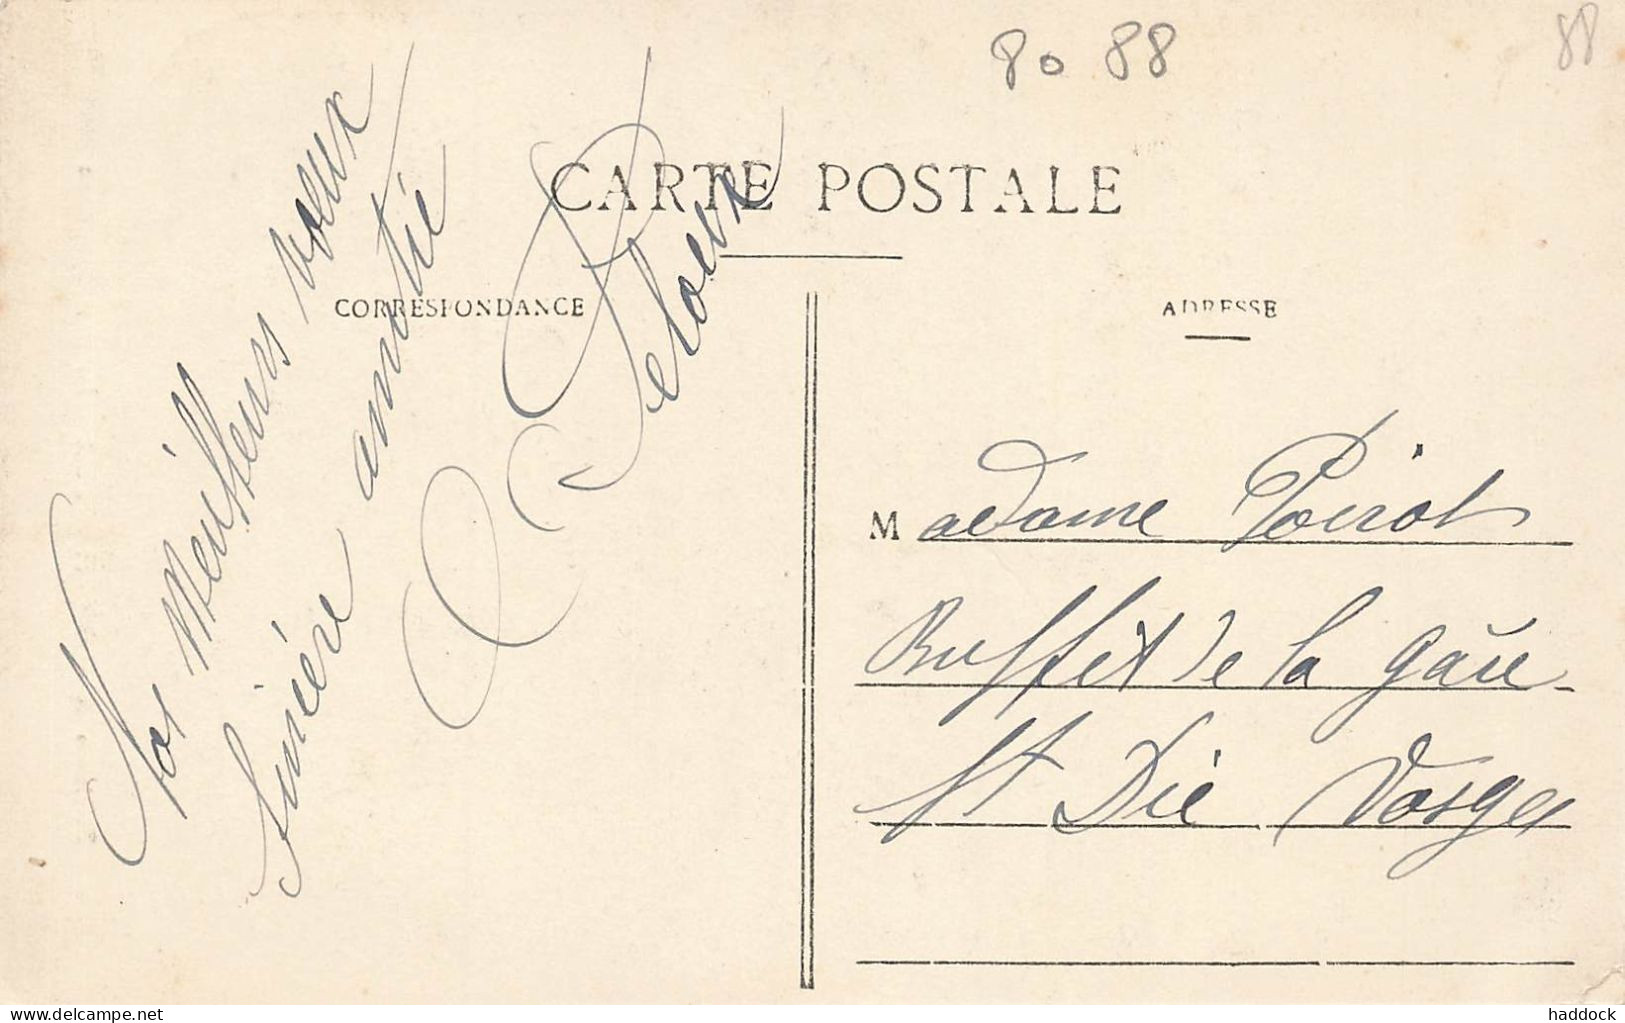 80 88
88
CARTE POSTALE
CORRESPONDANCE
ADRESSE
Nos meilleurs voeux
Sincère amitié
Peloux
Madame Poirot
Buffet de la gare
St Dié Vosges
delcampe.net
haddock